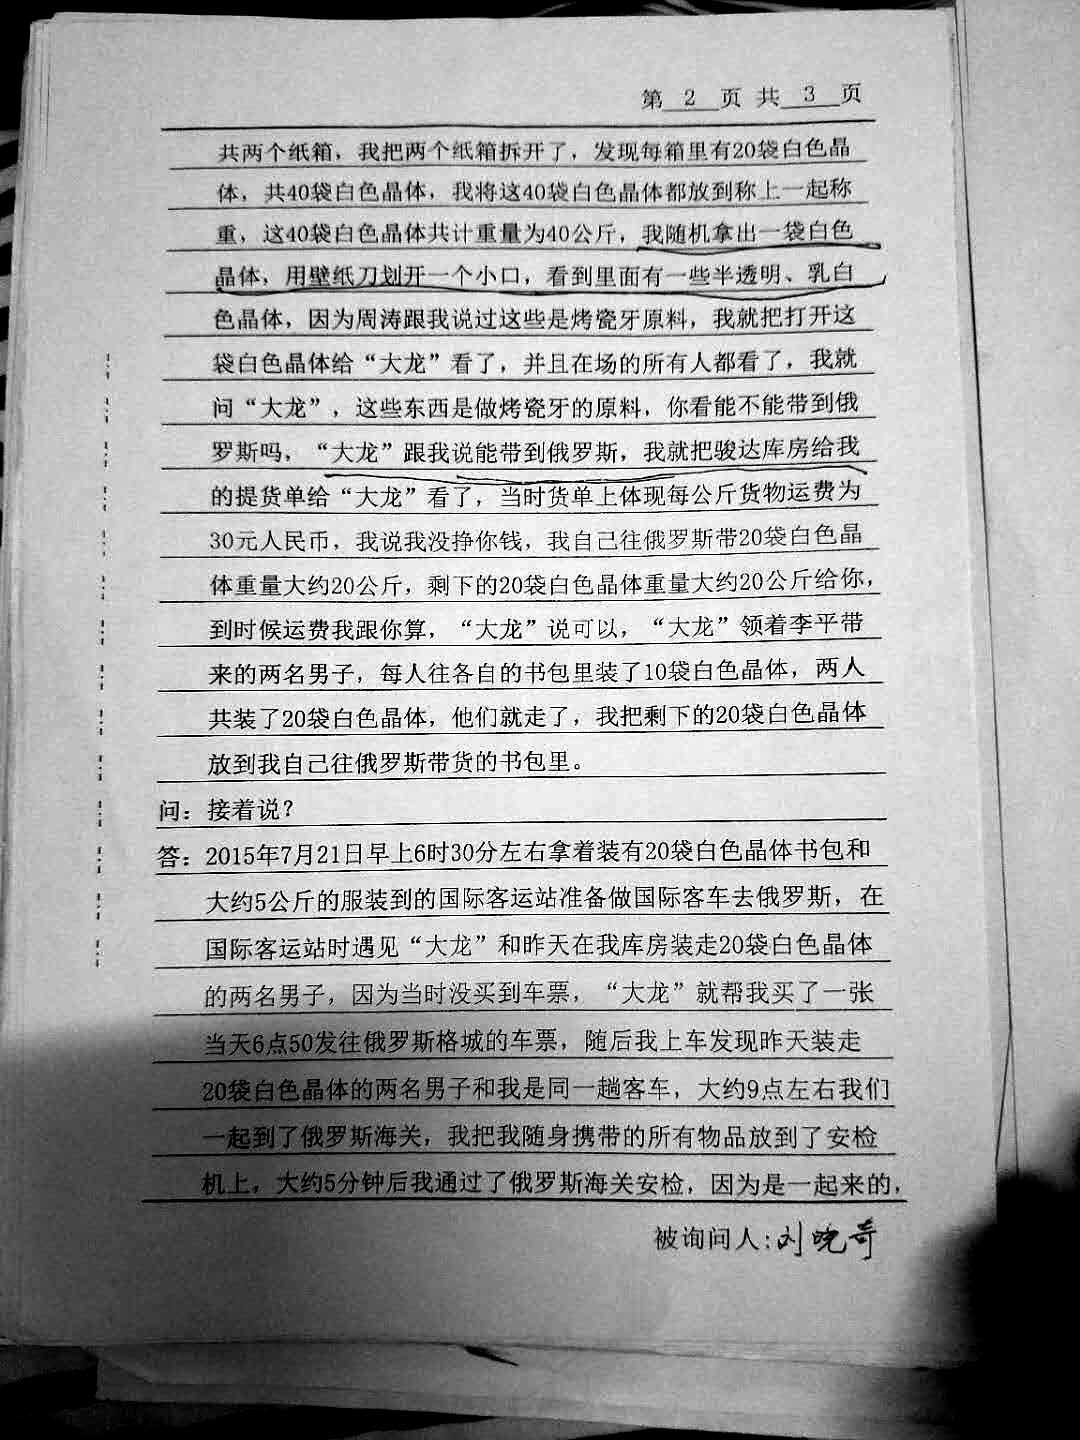 第 2 页 共 3 页
共两个纸箱，我把两个纸箱拆开了，发现每箱里有20袋白色晶
体，共40袋白色晶体，我将这40袋白色晶体都放到称上一起称
重，这40袋白色晶体共计重量为40公斤，我随机拿出一袋白色
晶体，用壁纸刀划开一个小口，看到里面有一些半透明、乳白
色晶体，因为周涛跟我说过这些是烤瓷牙原料，我就把打开这
袋白色晶体给“大龙”看了，并且在场的所有人都看了，我就
问“大龙”，这些东西是做烤瓷牙的原料，你看能不能带到俄
罗斯吗，“大龙”跟我说能带到俄罗斯，我就把骏达库房给我
的提货单给“大龙”看了，当时货单上体现每公斤货物运费为
30元人民币，我说我没挣你钱，我自己往俄罗斯带20袋白色晶
体重量大约20公斤，剩下的20袋白色晶体重量大约20公斤给你，
到时候运费我跟你算，“大龙”说可以，“大龙”领着李平带
来的两名男子，每人往各自的书包里装了10袋白色晶体，两人
共装了20袋白色晶体，他们就走了，我把剩下的20袋白色晶体
放到我自己往俄罗斯带货的书包里。
问：接着说？
答：2015年7月21日早上6时30分左右拿着装有20袋白色晶体书包和
大约5公斤的服装到的国际客运站准备做国际客车去俄罗斯，在
国际客运站时遇见“大龙”和昨天在我库房装走20袋白色晶体
的两名男子，因为当时没买到车票，“大龙”就帮我买了一张
当天6点50发往俄罗斯格城的车票，随后我上车发现昨天装走
20袋白色晶体的两名男子和我是同一趟客车，大约9点左右我们
一起到了俄罗斯海关，我把我随身携带的所有物品放到了安检
机上，大约5分钟后我通过了俄罗斯海关安检，因为是一起来的，
被询问人：刘晓奇